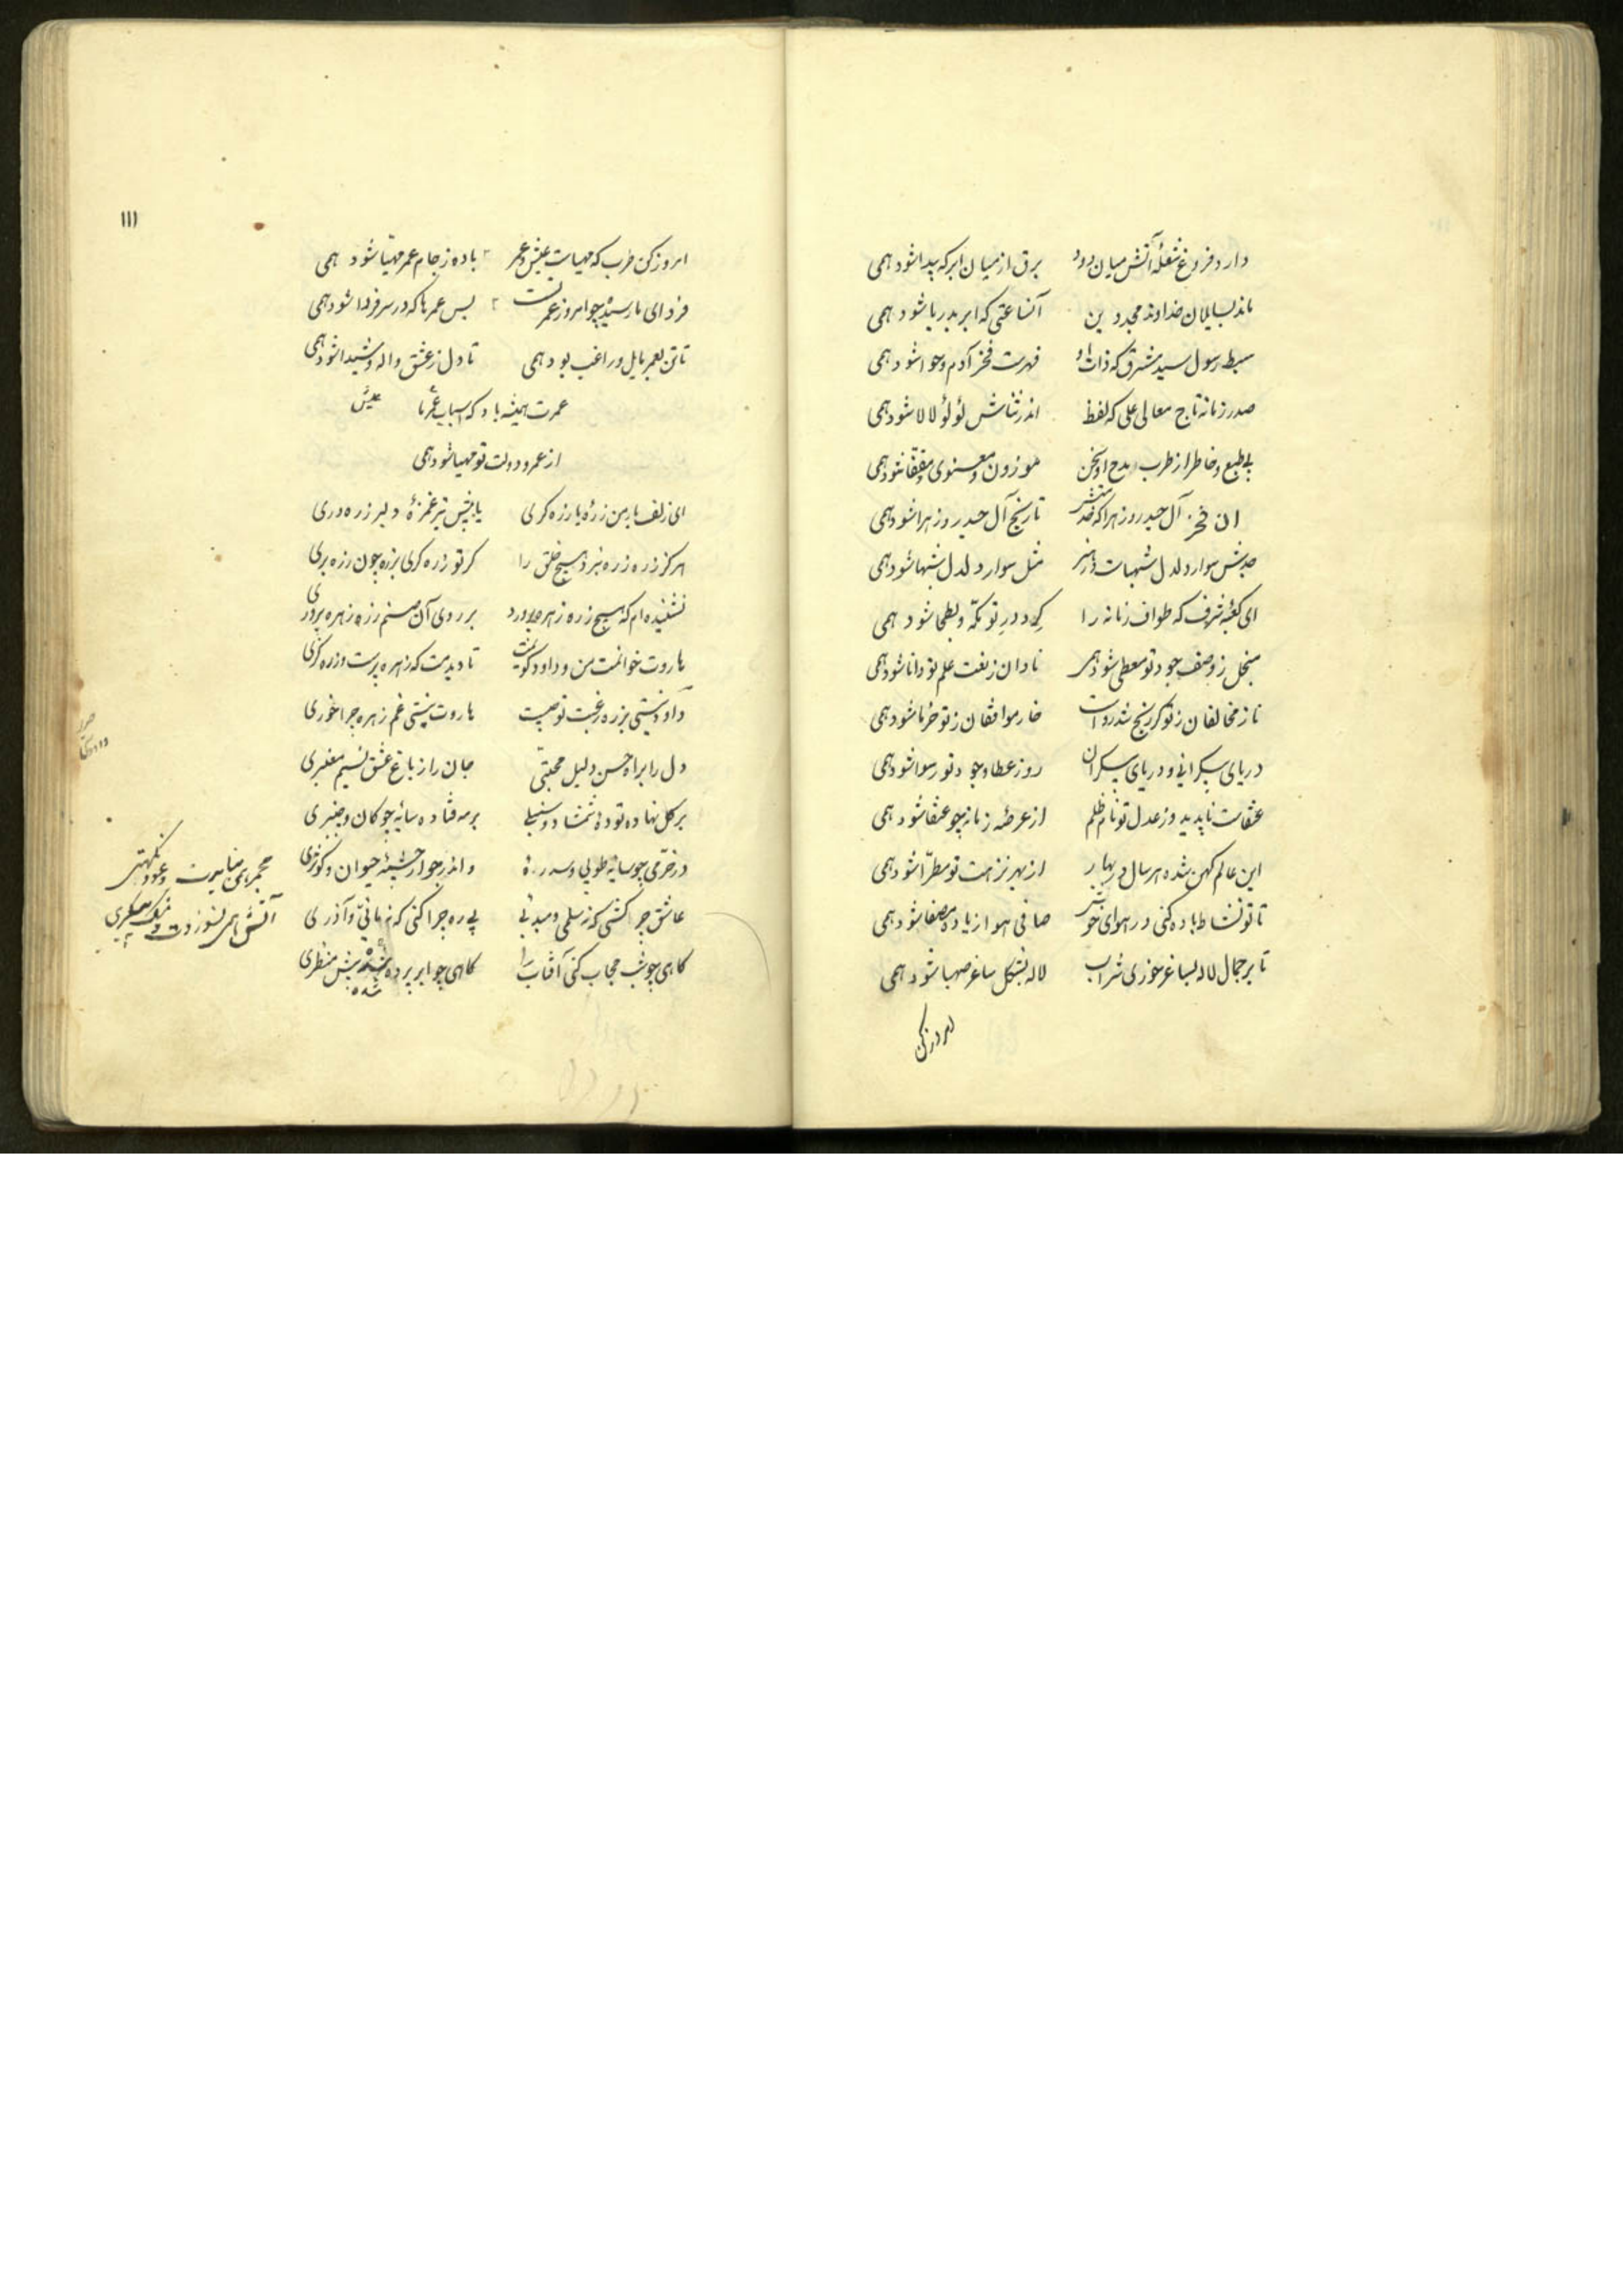 دارد فروغ شعلهٔ آتش میان دود برق از میان ابر که پیدا شود همی
ماند بسایلان خداوند مجد دین آنساعتی که ابر بدریا شود همی
سبط رسول سید مشرق که ذات او فهرست فخر آدم و حوا شود همی
صدر زمانه تاج معالی علی که لفظ اندر ثناش لؤلؤ لالا شود همی
بی طبع و خاطر از طرب مدح او سخن موزون و معنوی و مقفا شود همی
ان فخر آل حیدر و زهرا که تاریخ آل حیدر و زهرا شود همی
جدش سوار دلدل شهباست در هنر مثل سوار دلدل شهبا شود همی
ای کعبهٔ شرف که طواف زمانه را گرد در تو مکّه و بطحا شود همی
مبخل ز وصف جود تو معطی شود همی نادان ز نعت علم تو دانا شود همی
ناز مخالفان ز تو گر رنج شد رواست خار موافقان ز تو خرما شود همی
دریای بیکرانی و دریای بیکران روز عطا و جود تو رسوا شود همی
عنقاست ناپدید و ز عدل تو نام ظلم از عرصهٔ زمانه چو عنقا شود همی
این عالم کهن شده هر سال در بهار از بهر نزهت تو مطرّا شود همی
تا تو نشاط باده کنی در هوای خوش صافی هوا ز باده مصفا شود همی
تا بر جمال لاله بساغر خوری شراب لاله بشکل ساغر صهبا شود همی
امروز کن
۱۱۱
امروز کن طرب که مهیاست عیش و عمر باده ز جام عمر مهیّا شود همی
فردای نارسیده چو امروز عمر نیست بس عمرها که در سر فردا شود همی
تا تن بعمر مایل و راغب بود همی تا دل ز عشق واله و شیدا شود همی
عمرت همیشه باد که اسباب عمر ما
عیش
از عمر و دولت تو مهیا شود همی
ای زلف یار من زرهٔ یا زره گری یا پیش تیر غمزهٔ دلبر زره دری
هرگز زره زره نبرد هیچ خلق را گر تو زره گری بزره چون زره بری
نشنیده ام که هیچ زره زهره پرورد بر روی آن صنم زره زهره پروری
هاروت خوانمت من و داود گویمت تا دیدمت که زهره پرست و زره گری
داود نیستی بزره رغبت تو چیست هاروت نیستی غم زهره چرا خوری
دل را براه حسن دلیل محبّتی جان را ز باغ عشق نسیم معنبری
بر گل نهاده تودهٔ شمشاد و سنبلی بر مه فتاده سایهٔ چوگان و چنبری
در خرّمی چو سایهٔ طوبی و سدرهٔ و اندر جوار چشمهٔ حیوان و کوثری
عاشق چرا کشی که نه سلمی و میه ئی بی ره چرا کنی که نه مانیّ و آذری
گاهی چو شب حجاب کنی آفتاب را گاهی چو ابر پرده شده پیش منظری
شده
مجمر همی نیایدت و عود نکهتی
آتش همی نسوزدت و